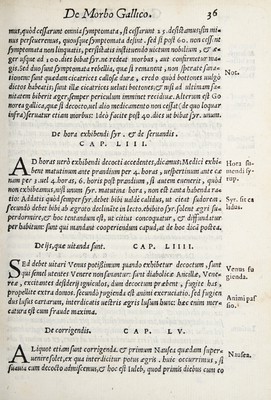 De Morbo Gallico. 36
mus, quòd cessarunt omnia symptomata, si cessarunt 15. destituimus sin mi-
nus perseueremus, quousque symptomata desinant. sed si post 60. non cessent
symptomata non linquatis, persistatis instituendo uictum nobilium, &
ger usque ad 100. dies bibat syr. ne redeat morbus, aut confirmetur ma-
gis. Sed duo sunt symptomata rebellia, quæ si remaneant, non speretis sana-
tionem: sunt quædam cicatrices callosæ duræ, credo quòd bottones uulgò
dictos habeatis: sunt illæ cicatrices ueluti bottones: & nisi ad ultimum sa-
nitatem habeat æger. semper periculum imminet recidiuæ. Alterum est Go
norea gallica, quæ si decocto, uel alio medicamento non cessat (de quo loquar
infra) seruatur etiam morbus: ideò facite post 40. dies ut bibat syr. unum.
Not.
De hora exhibendi syr. & de seruandis.
CAP. LIII.
AD horas uerò exhibendi decocti accedentes, dicamus: Medici exhi-
bent matutinum ante prandium per 4. horas, uespertinum ante cæ
nam per 3. uel 4. horas, 6. horis post prandium, si autem cœnent, quòd
non exhibeamus, nisi unum syr. matutina hora, non est tanta habenda ra-
tio: Addatis quòd semper syr. debet bibi ualdè calidus, ut citet sudorem,
secundò debet bibi ab ægroto declinante in lecto. ebibito syr. solent ægri sæ
perdormire, & hoc tentandum est, ut citius concoquatur, & diffundatur
per habitum: sunt qui mandant cooperiendum caput, at de hoc dicã postea.
Hora su-
mendi sy-
rup.
Syr. sit ca
lidus.
De ijs, quæ uitanda sunt. CAP. LIIII.
SEd debet uitari Venus potissimum quando exhibetur decoctum, sunt
qui semel utentes Venere non sanantur: sunt diabolicæ Ancillæ, Vene-
rea, excitantes desiderij igniculos, dum decoctum præbent, fugite has,
propellite extra domos. Secundò fugienda est animi exercitatio. sed fugien
dus lusus cartarum, interdicatis uestris ægris lusum hunc: hæc enim mer-
catura est cum fraude maxima.
Venus fu
gienda.
Animi pas
sio.
De corrigendis. CAP. LV.
ALiquot etiam sunt corrigenda. & primum Nausea quædam super-
uenire solet, ex qua interdicitur potus ægris. huic occurrimus, si
cum decocto admisceamus, & hoc est iuleb, quod primis diebus cum eo
Nausea.